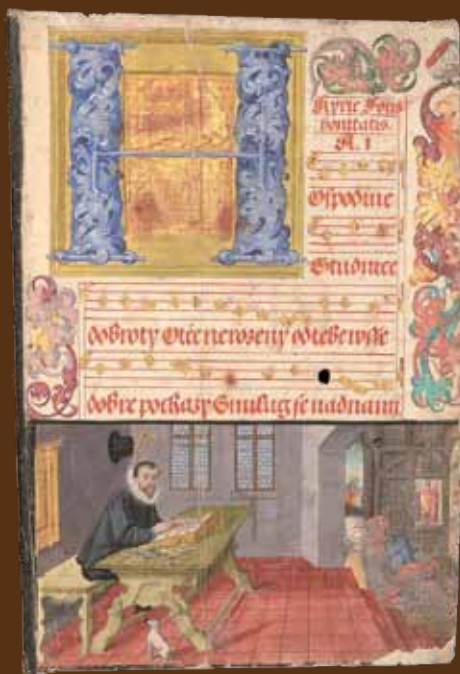 H
Kyrie Fons
bonitatis.
A. 1
Ospodine
Studnice
dobroty Otče nerozený od tebe wsse
dobre pochazy Smilug se nad nami